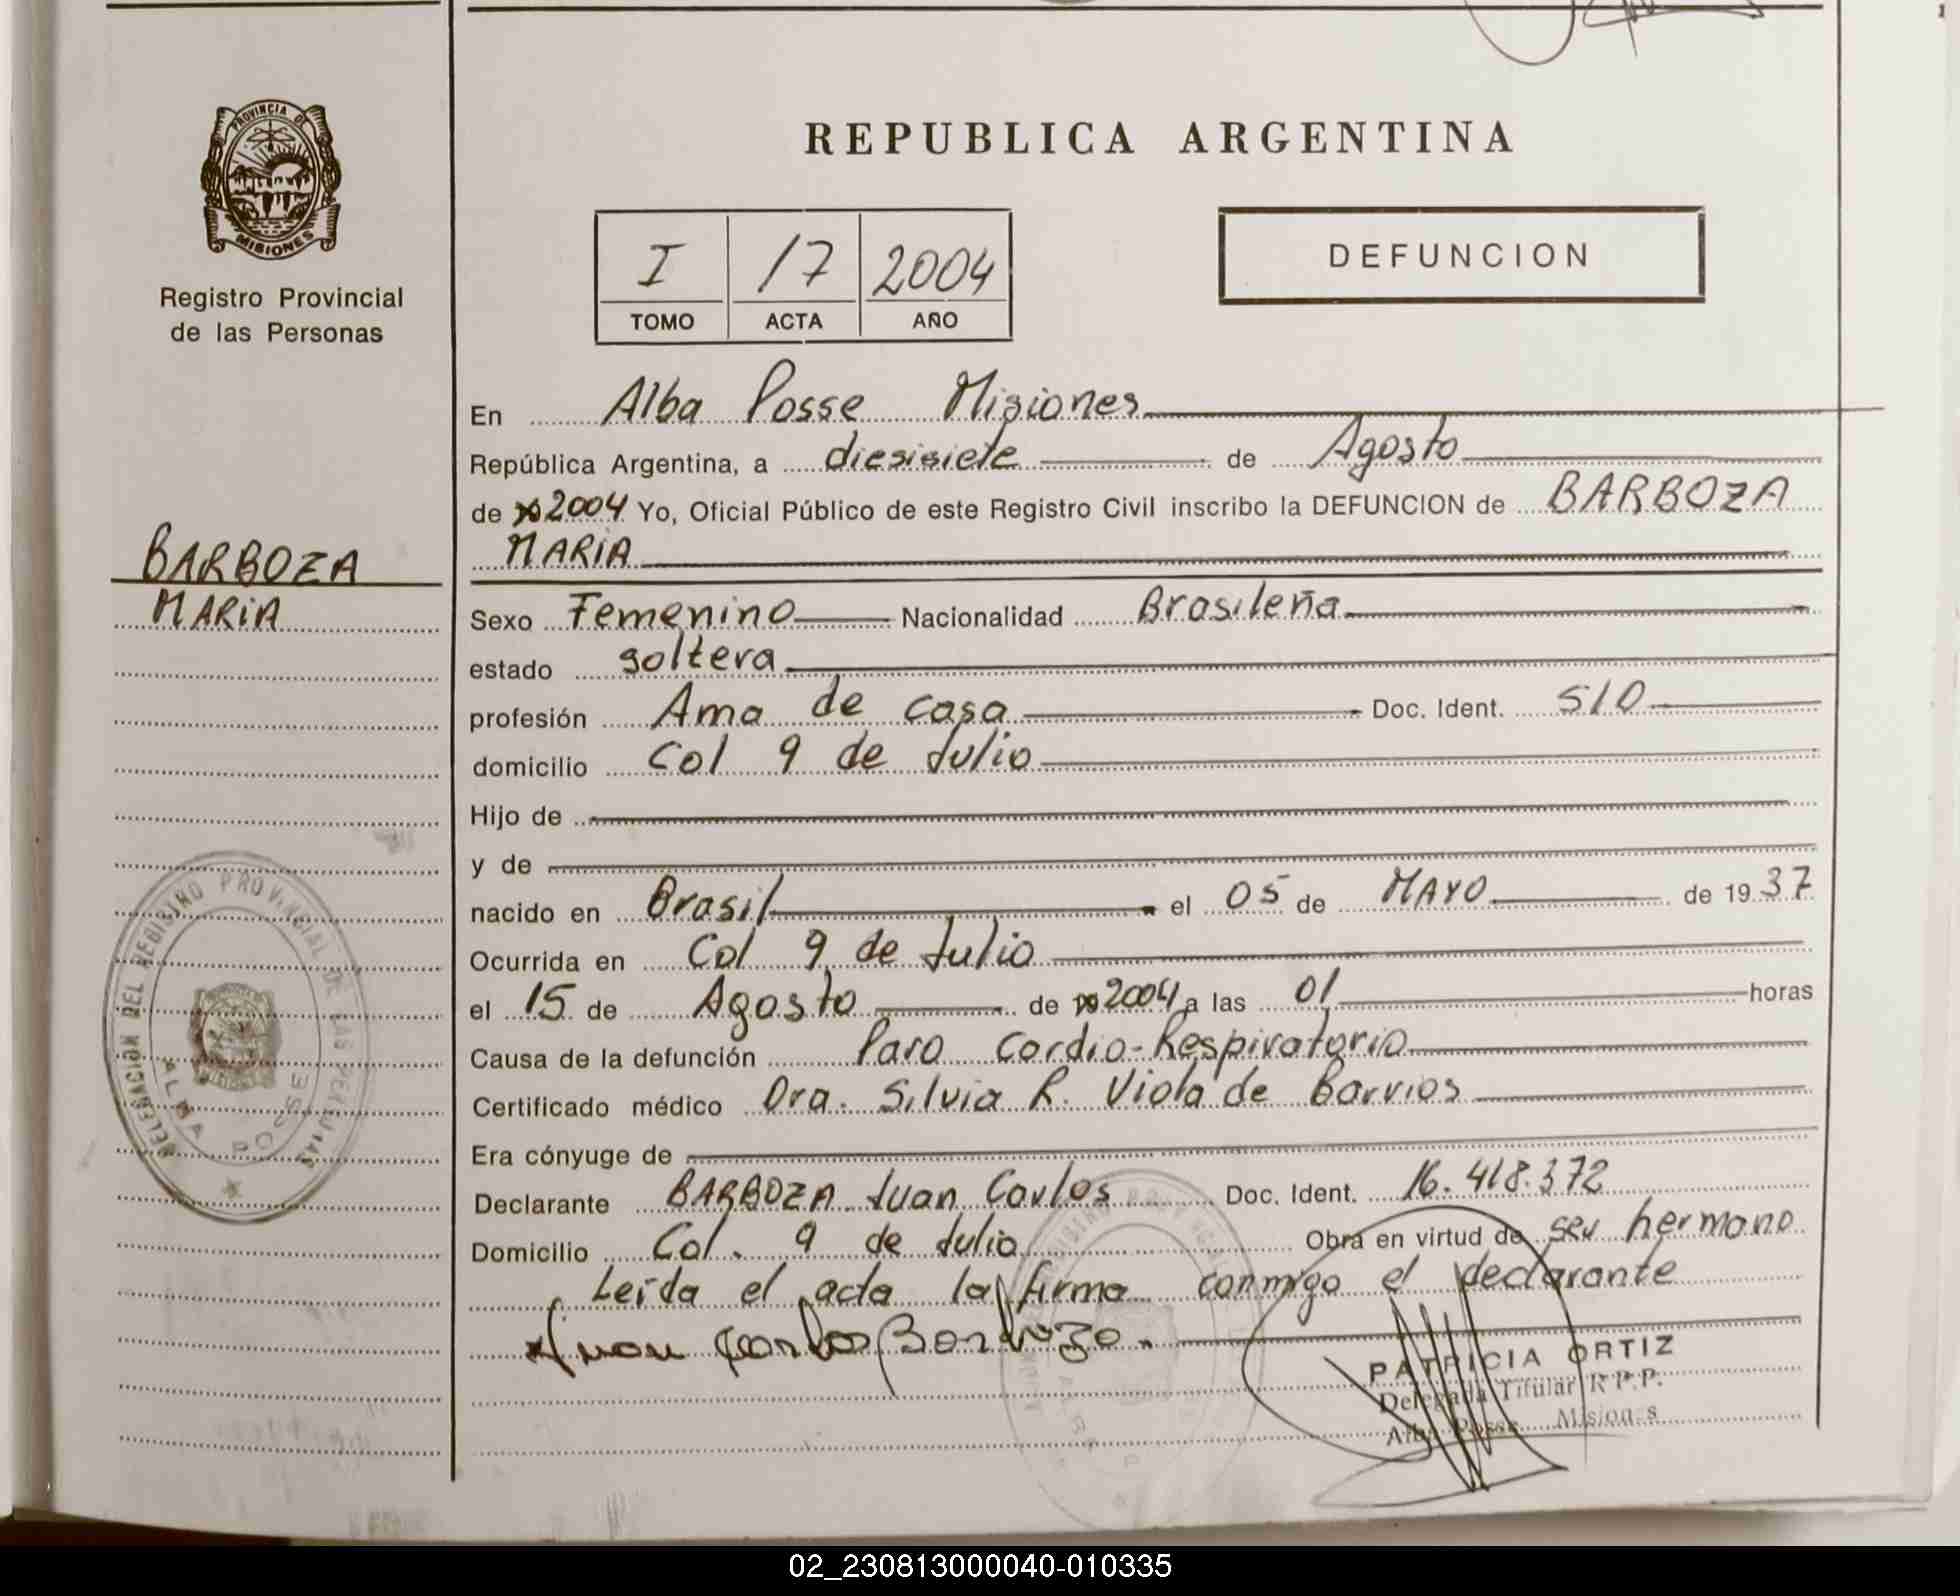 PROVINCIA DE
MISIONES
Registro Provincial
de las Personas
BARBOZA
MARIA
DELEGACION DEL REGISTRO PROVINCIAL DE LAS PERSONAS
ALBA POSSE
REPUBLICA ARGENTINA
I 17 2004
TOMO ACTA AÑO
DEFUNCION
En Alba Posse Misiones
República Argentina, a diesisiete de Agosto
de 2004 Yo, Oficial Público de este Registro Civil inscribo la DEFUNCION de BARBOZA
MARIA
Sexo Femenino Nacionalidad Brasileña
estado soltera
profesión Ama de casa Doc. Ident. S/D
domicilio Col 9 de Julio
Hijo de
y de
nacido en Brasil el 05 de MAYO de 1937
Ocurrida en Col 9 de Julio
el 15 de Agosto de 2004 a las 01 horas
Causa de la defunción Paro Cardio-Respiratorio
Certificado médico Dra. Silvia R. Viola de Barrios
Era cónyuge de
Declarante BARBOZA Juan Carlos Doc. Ident. 16.418.372
Domicilio Col. 9 de Julio Obra en virtud de ser hermano
Leída el acta la firma conmigo el declarante
Juan Carlos Barboza.
PATRICIA ORTIZ
Delegada Titular R.P.P.
Alba Posse Misiones
02_230813000040-010335